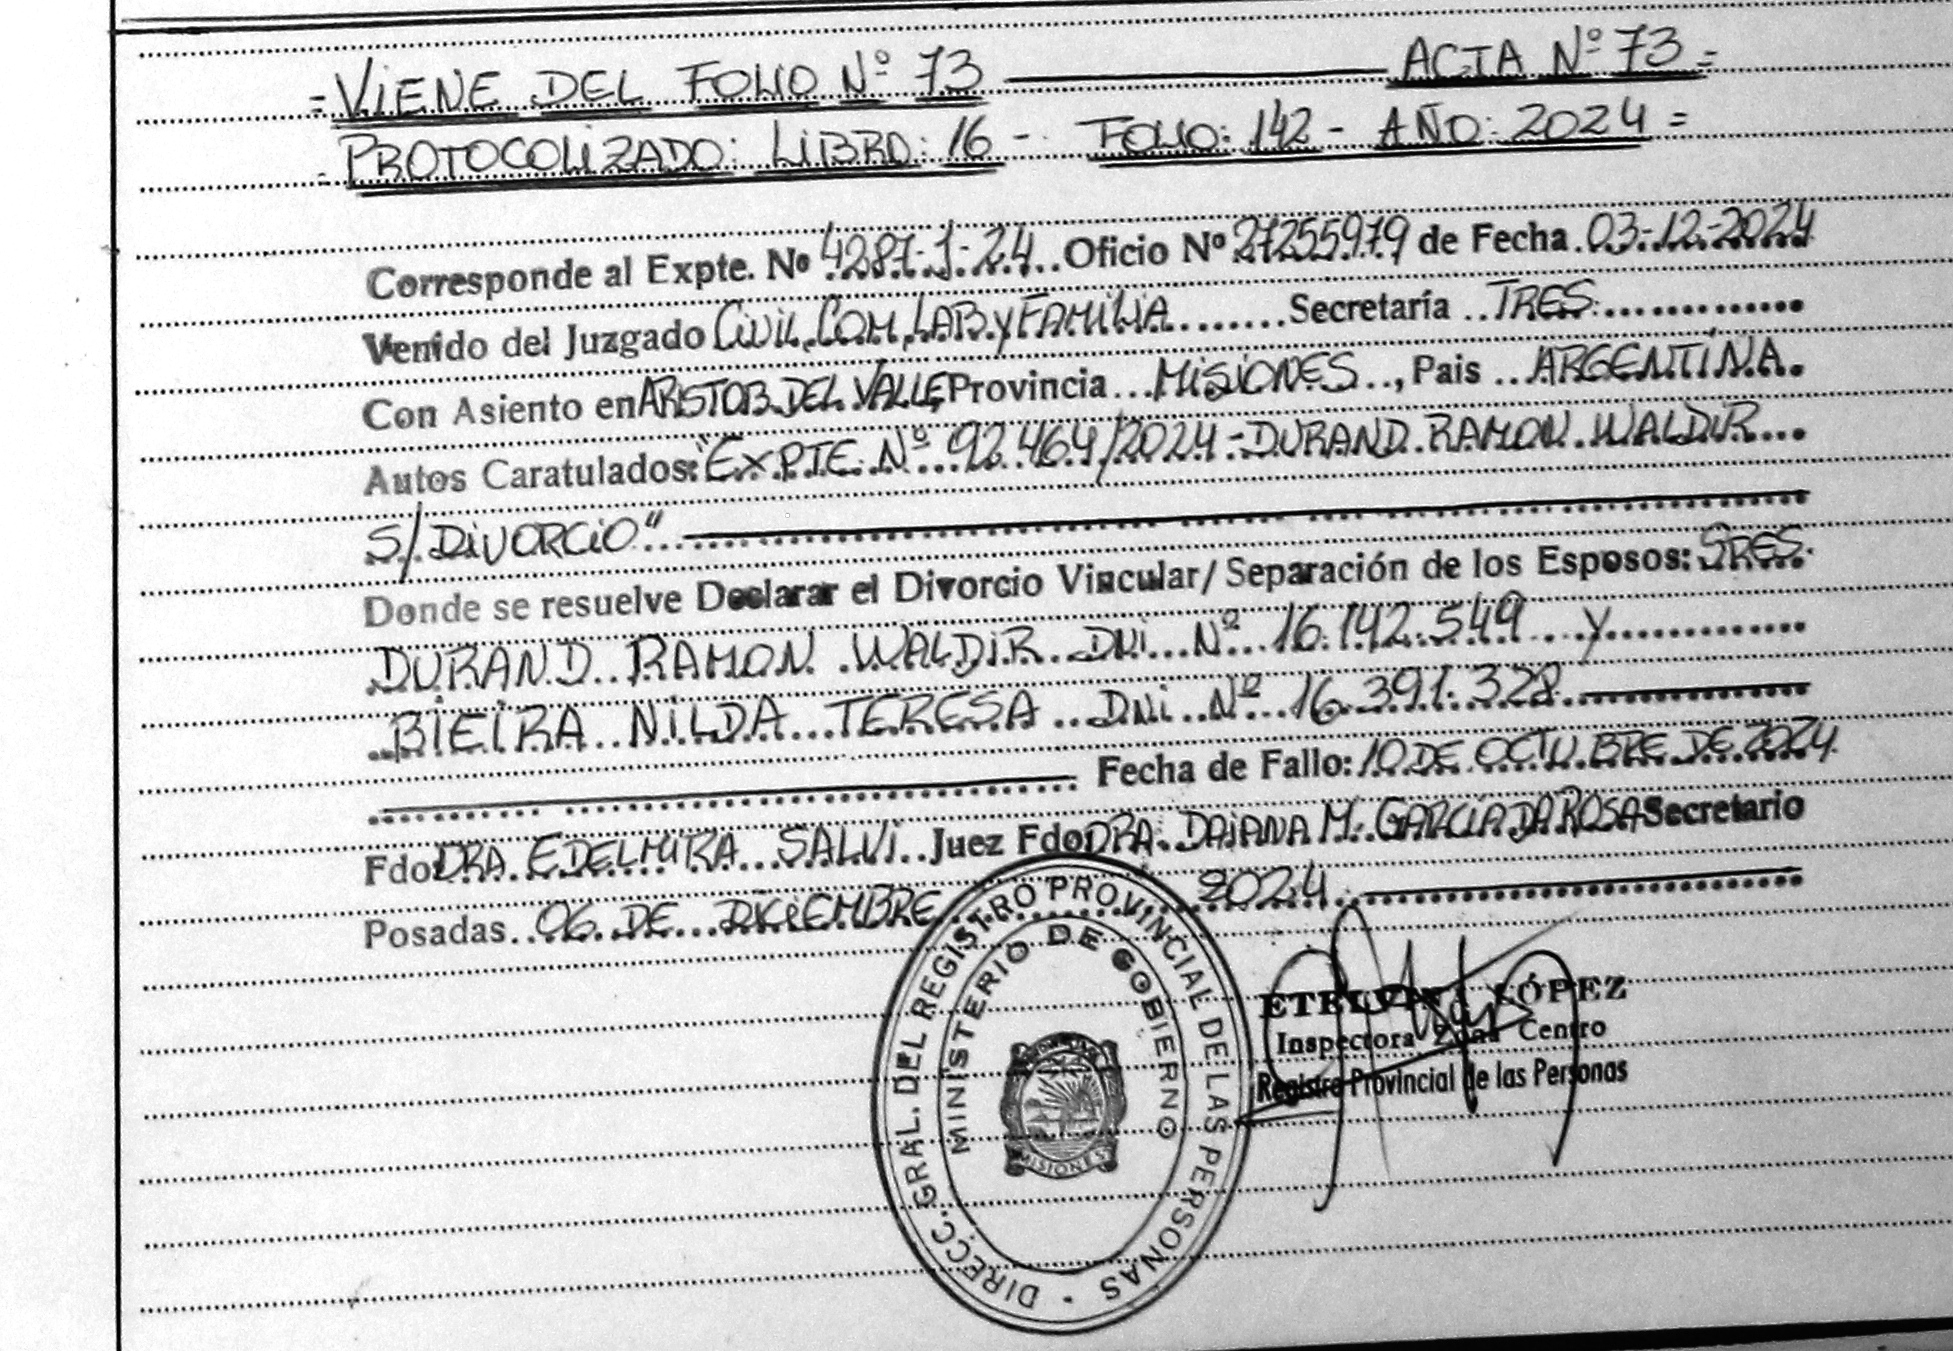 = VIENE DEL FOLIO Nº 73 ACTA Nº 73 =
PROTOCOLIZADO: LIBRO: 16 - FOLIO: 142 - AÑO: 2024 =
Corresponde al Expte. Nº 4287-J-24 Oficio Nº 27255979 de Fecha 03-12-2024
Venido del Juzgado CIVIL, COM, LAB y FAMILIA Secretaría TRES
Con Asiento en ARISTOB. DEL VALLE Provincia MISIONES, Pais ARGENTINA.
Autos Caratulados: "EXPTE Nº 92.464/2024 - DURAND RAMON WALDIR
S/ DIVORCIO"
Donde se resuelve Declarar el Divorcio Vincular/ Separación de los Esposos: SRES.
DURAND RAMON WALDIR DNI Nº 16.142.549 y
BIEIRA NILDA TERESA DNI Nº 16.391.328
Fecha de Fallo: 10 DE OCTUBRE DE 2024
Fdo DRA. EDELMIRA SALVI Juez Fdo DRA. DAIANA M. GARCIA DA ROSA Secretario
Posadas 06 DE DICIEMBRE 2024
DIRECC. GRAL. DEL REGISTRO PROVINCIAL DE LAS PERSONAS
MINISTERIO DE GOBIERNO
MISIONES
ETELVINA LÓPEZ
Inspectora Zona Centro
Registro Provincial de las Personas